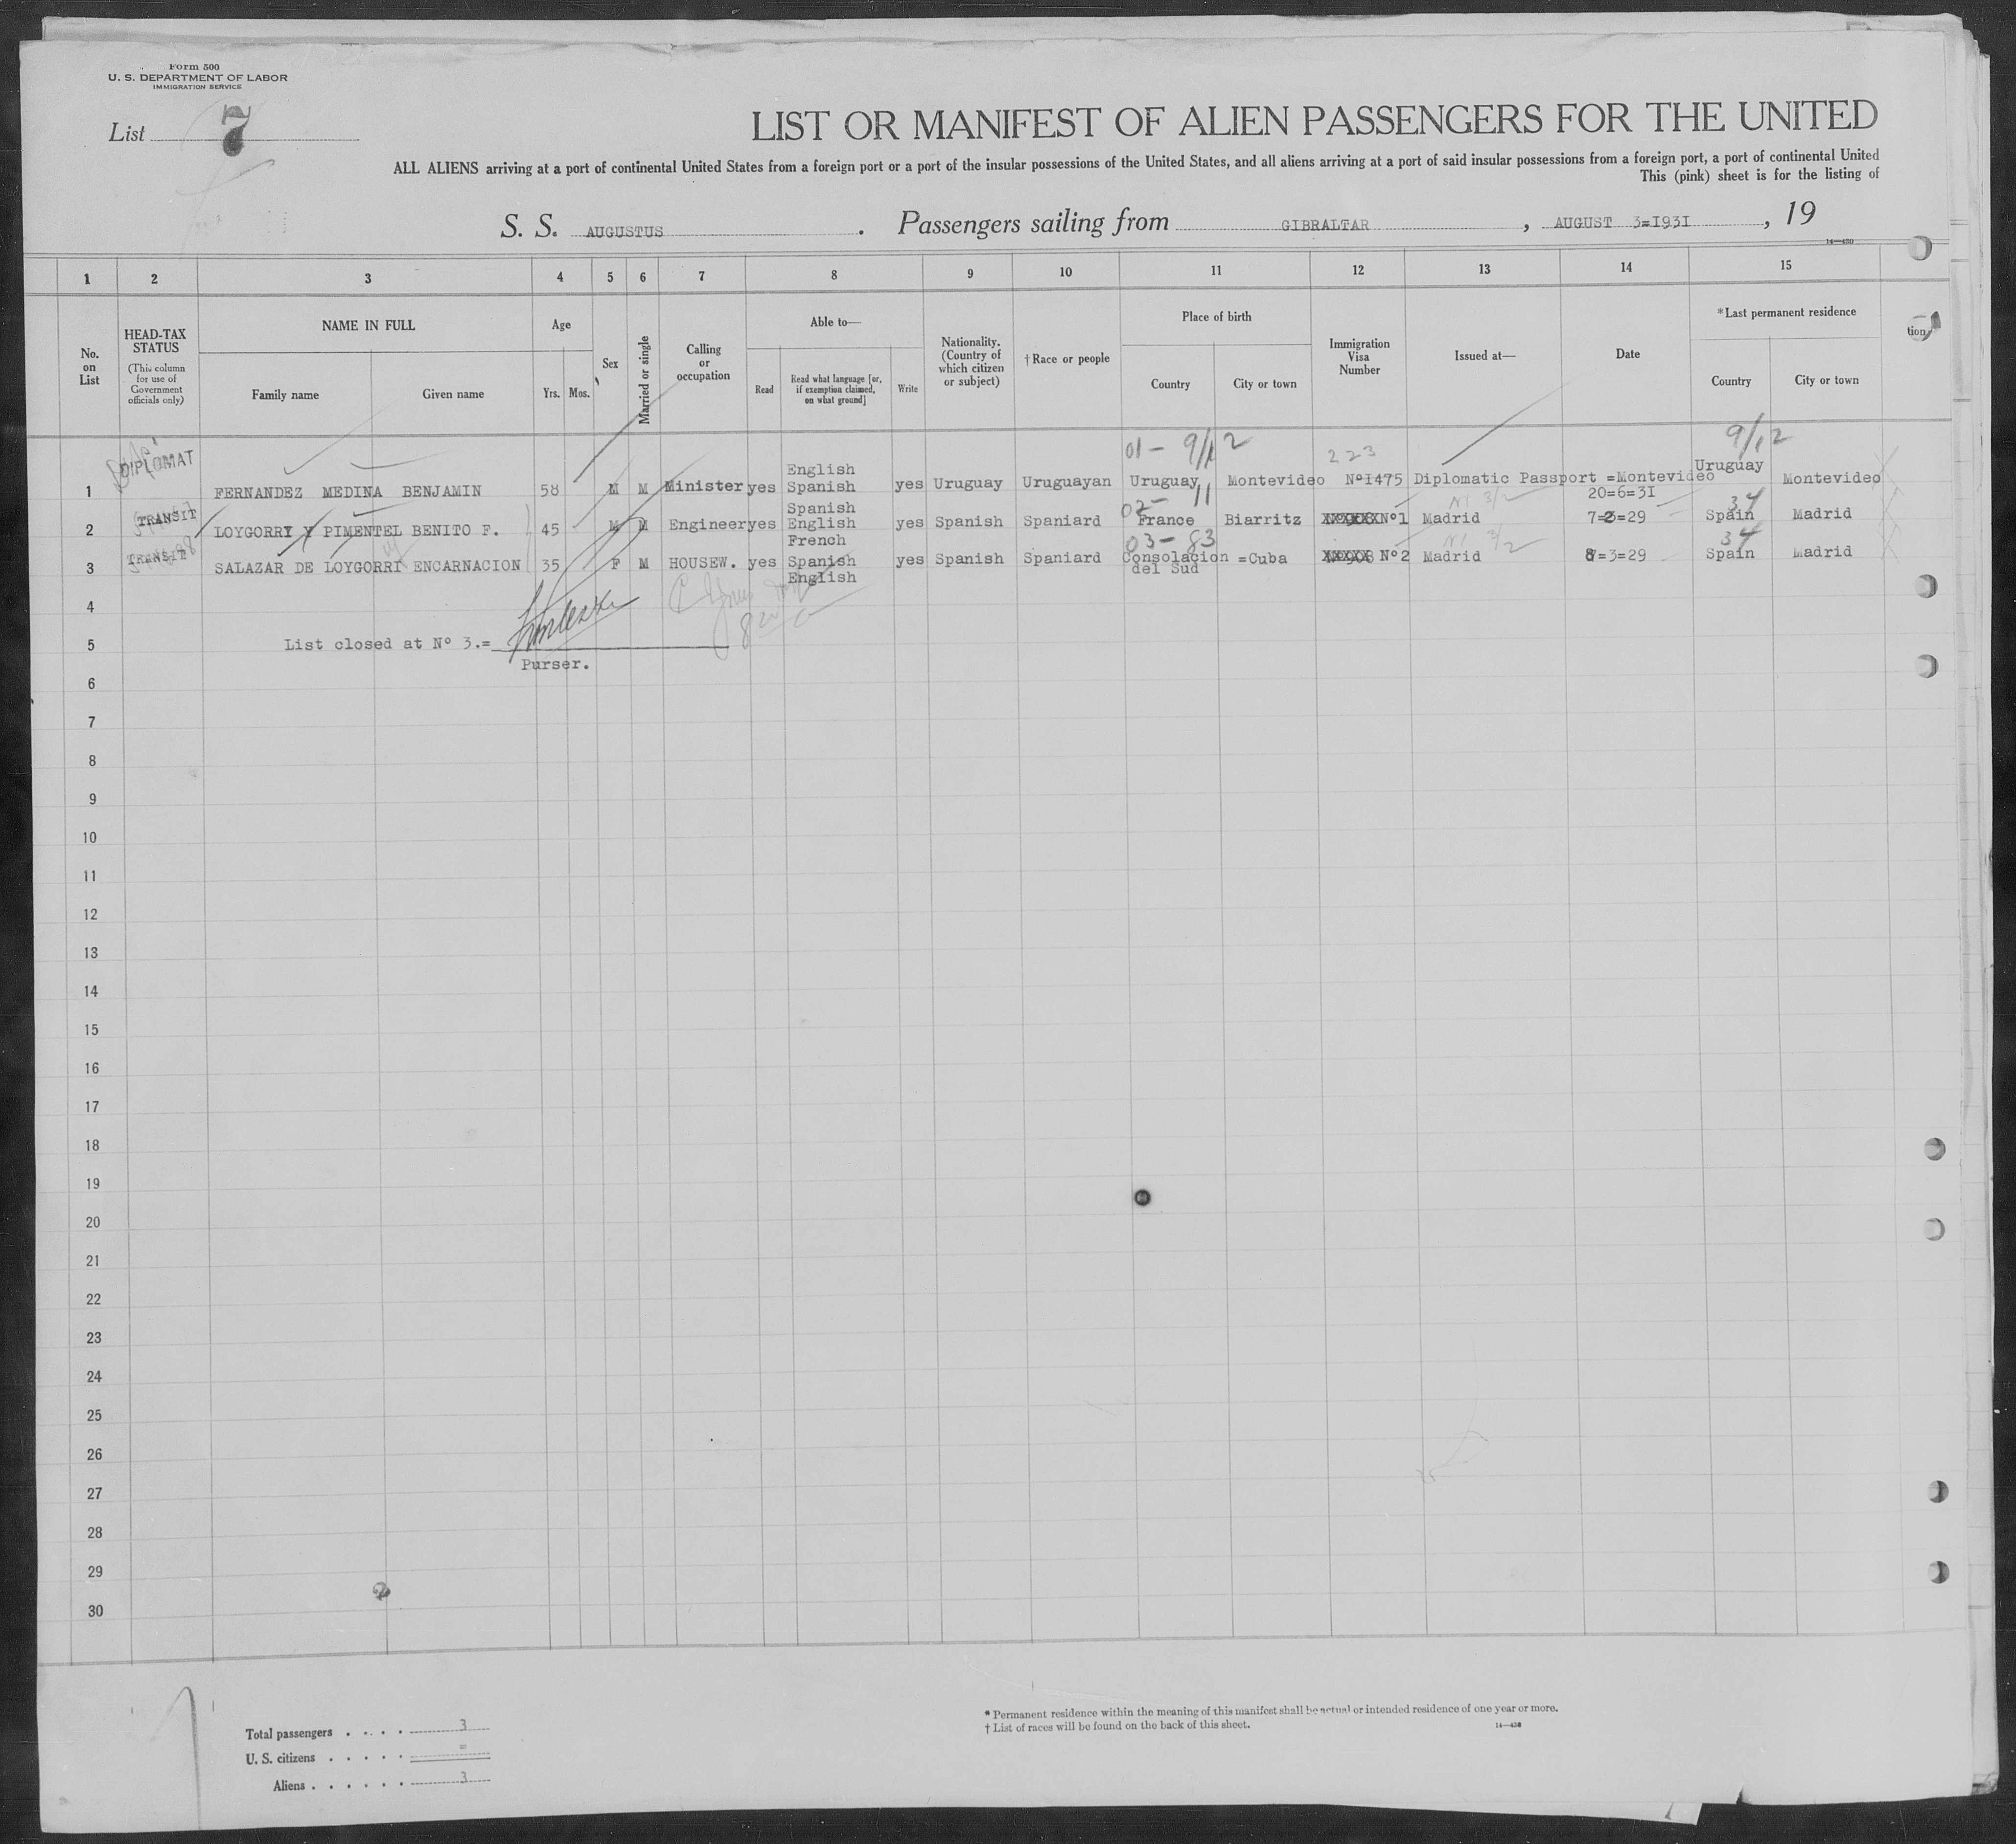 Form 500
U. S. DEPARTMENT OF LABOR
IMMIGRATION SERVICE
List 7
LIST OR MANIFEST OF ALIEN PASSENGERS FOR THE UNITED
ALL ALIENS arriving at a port of continental United States from a foreign port or a port of the insular possessions of the United States, and all aliens arriving at a port of said insular possessions from a foreign port, a port of continental United
This (pink) sheet is for the listing of
S. S. AUGUSTUS . Passengers sailing from GIBRALTAR , AUGUST 3=1931 , 19
14—430
1 2 3 4 5 6 7 8 9 10 11 12 13 14 15
No. on List
HEAD-TAX STATUS
(This column for use of Government officials only)
NAME IN FULL
Family name Given name
Age
Yrs. Mos.
Sex
Married or single
Calling or occupation
Able to—
Read
Read what language [or, if exemption claimed, on what ground]
Write
Nationality. (Country of which citizen or subject)
† Race or people
Place of birth
Country City or town
Immigration Visa Number
Issued at—
Date
* Last permanent residence
Country City or town
tion
01 - 9/12 223 9/12
DIPLOMAT English Uruguay
1 FERNANDEZ MEDINA BENJAMIN 58 M M Minister yes Spanish yes Uruguay Uruguayan Uruguay Montevideo Nº1475 Diplomatic Passport =Montevideo Montevideo
20=6=31
02- 11 34
TRANSIT Spanish
2 LOYGORRI Y PIMENTEL BENITO F. 45 M M Engineer yes English yes Spanish Spaniard France Biarritz Nº1 Madrid 7=3=29 Spain Madrid
French
03- 83 34
TRANSIT
3 SALAZAR DE LOYGORRI ENCARNACION 35 F M HOUSEW. yes Spanish yes Spanish Spaniard Consolacion =Cuba Nº2 Madrid 8=3=29 Spain Madrid
English del Sud
4
5 List closed at Nº 3.=
Purser.
6
7
8
9
10
11
12
13
14
15
16
17
18
19
20
21
22
23
24
25
26
27
28
29
30
Total passengers . . . . . 3
U. S. citizens . . . . . =
Aliens . . . . . . 3
* Permanent residence within the meaning of this manifest shall be actual or intended residence of one year or more.
† List of races will be found on the back of this sheet. 14—430